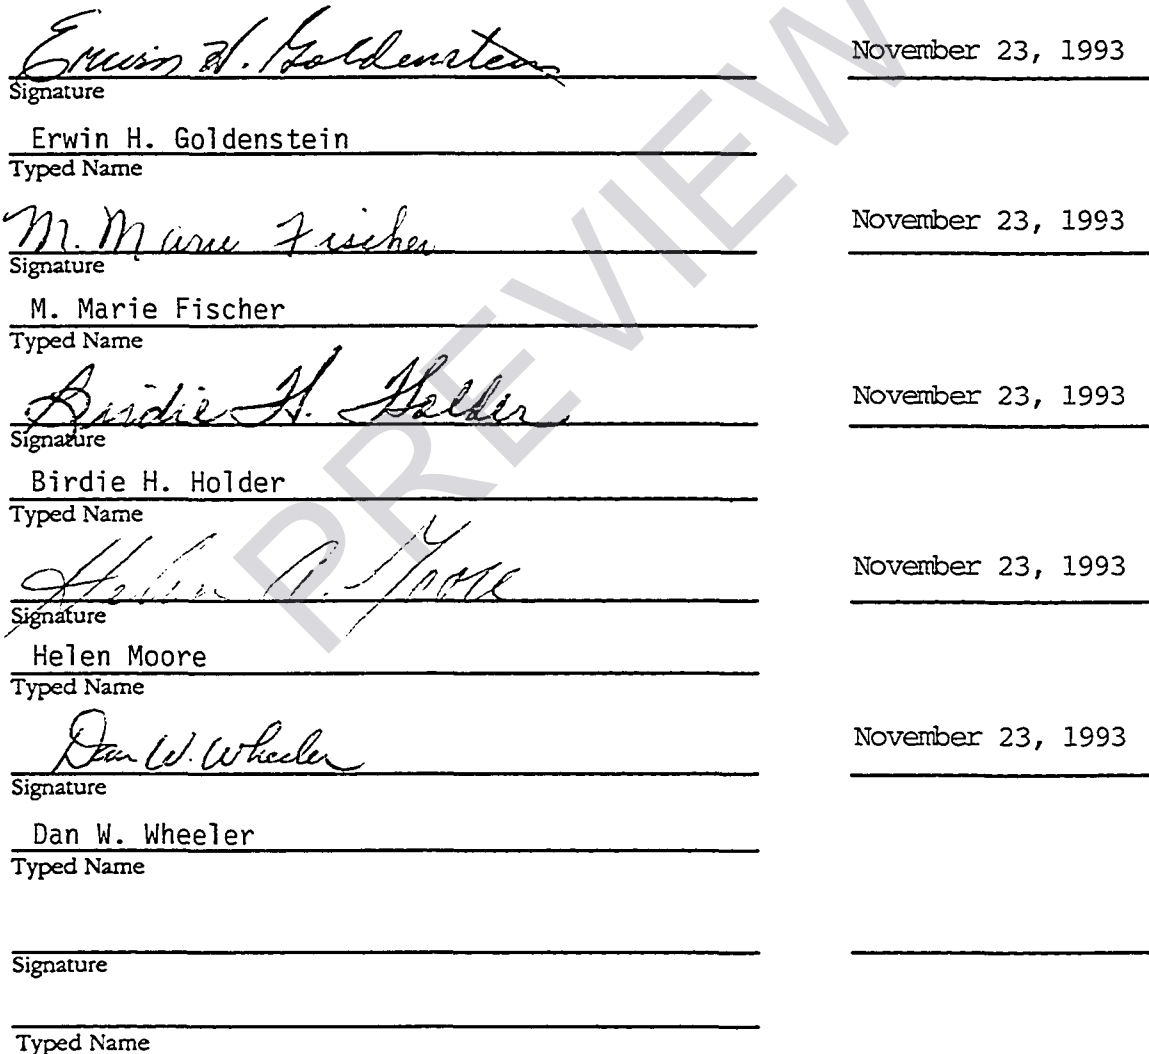 Erwin H. Goldenstein November 23, 1993
Signature
Erwin H. Goldenstein
Typed Name
M. Marie Fischer November 23, 1993
Signature
M. Marie Fischer
Typed Name
Birdie H. Holder November 23, 1993
Signature
Birdie H. Holder
Typed Name
Helen A. Moore November 23, 1993
Signature
Helen Moore
Typed Name
Dan W. Wheeler November 23, 1993
Signature
Dan W. Wheeler
Typed Name
Signature
Typed Name
PREVIEW